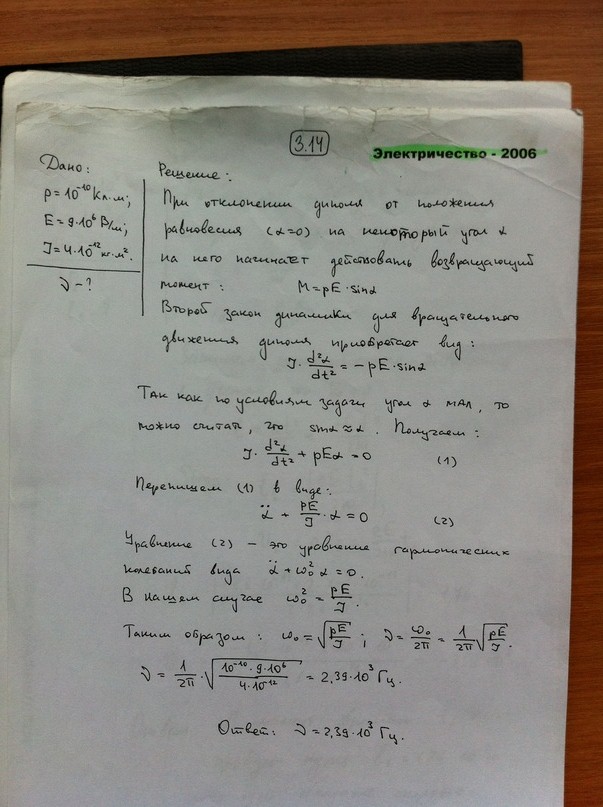 3.14
Электричество - 2006
Дано:
p = 10⁻¹⁰ Кл·м;
E = 9·10⁶ В/м;
J = 4·10⁻¹² кг·м².
ν - ?
Решение:
При отклонении диполя от положения
равновесия (α=0) на некоторый угол α
на него начинает действовать возвращающий
момент: M = pE·sinα
Второй закон динамики для вращательного
движения диполя приобретает вид:
J·d²α/dt² = -pE·sinα
Так как по условиям задачи угол α мал, то
можно считать, что sinα ≈ α. Получаем:
J·d²α/dt² + pEα = 0 (1)
Перепишем (1) в виде:
α̈ + pE/J·α = 0 (2)
Уравнение (2) – это уравнение гармонических
колебаний вида α̈ + ω₀²α = 0.
В нашем случае ω₀² = pE/J.
Таким образом: ω₀ = √(pE/J); ν = ω₀/2π = 1/2π √(pE/J).
ν = 1/2π·√(10⁻¹⁰·9·10⁶/4·10⁻¹²) = 2,39·10³ Гц.
Ответ: ν = 2,39·10³ Гц.